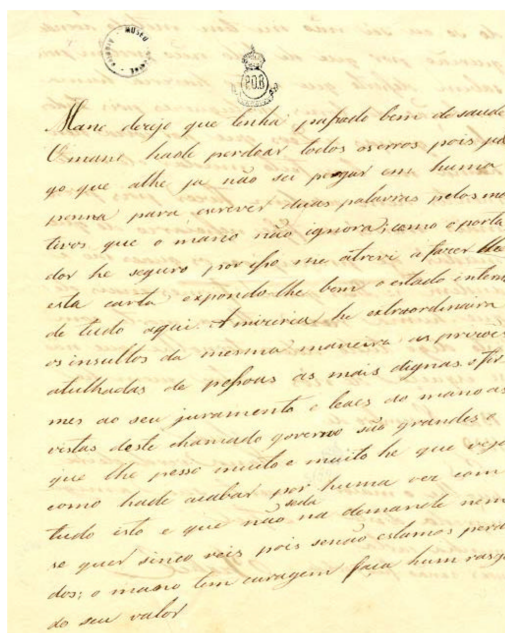 MUSEU
P.O.B
Mano dezejo que tenha passado bem de saude
O mano hade perdoar todos os erros pois jul
go que athe ja não sei pegar em huma
penna para escrever duas palavras pelos mo
tivos que o mano não ignora; como o porta
dor he seguro por isso me atrevi a fazer
esta carta expondo lhe bem o estado intern
de tudo aqui. A mizeria he extraordinaria
os insultos da mesma maneira as prizoes
atulhadas de pessoas as mais dignas e fir
mes ao seu juramento e leaes ao mano as
vistas deste chamado governo são grandes o
que lhe pesso muito e muito he que veja
como hade acabar por huma vez com
tudo isto e que não seda na demande nem
se quer sinco reis pois senão estamos perd
dos; o mano tem curagem faça hum rasg
do seu valor